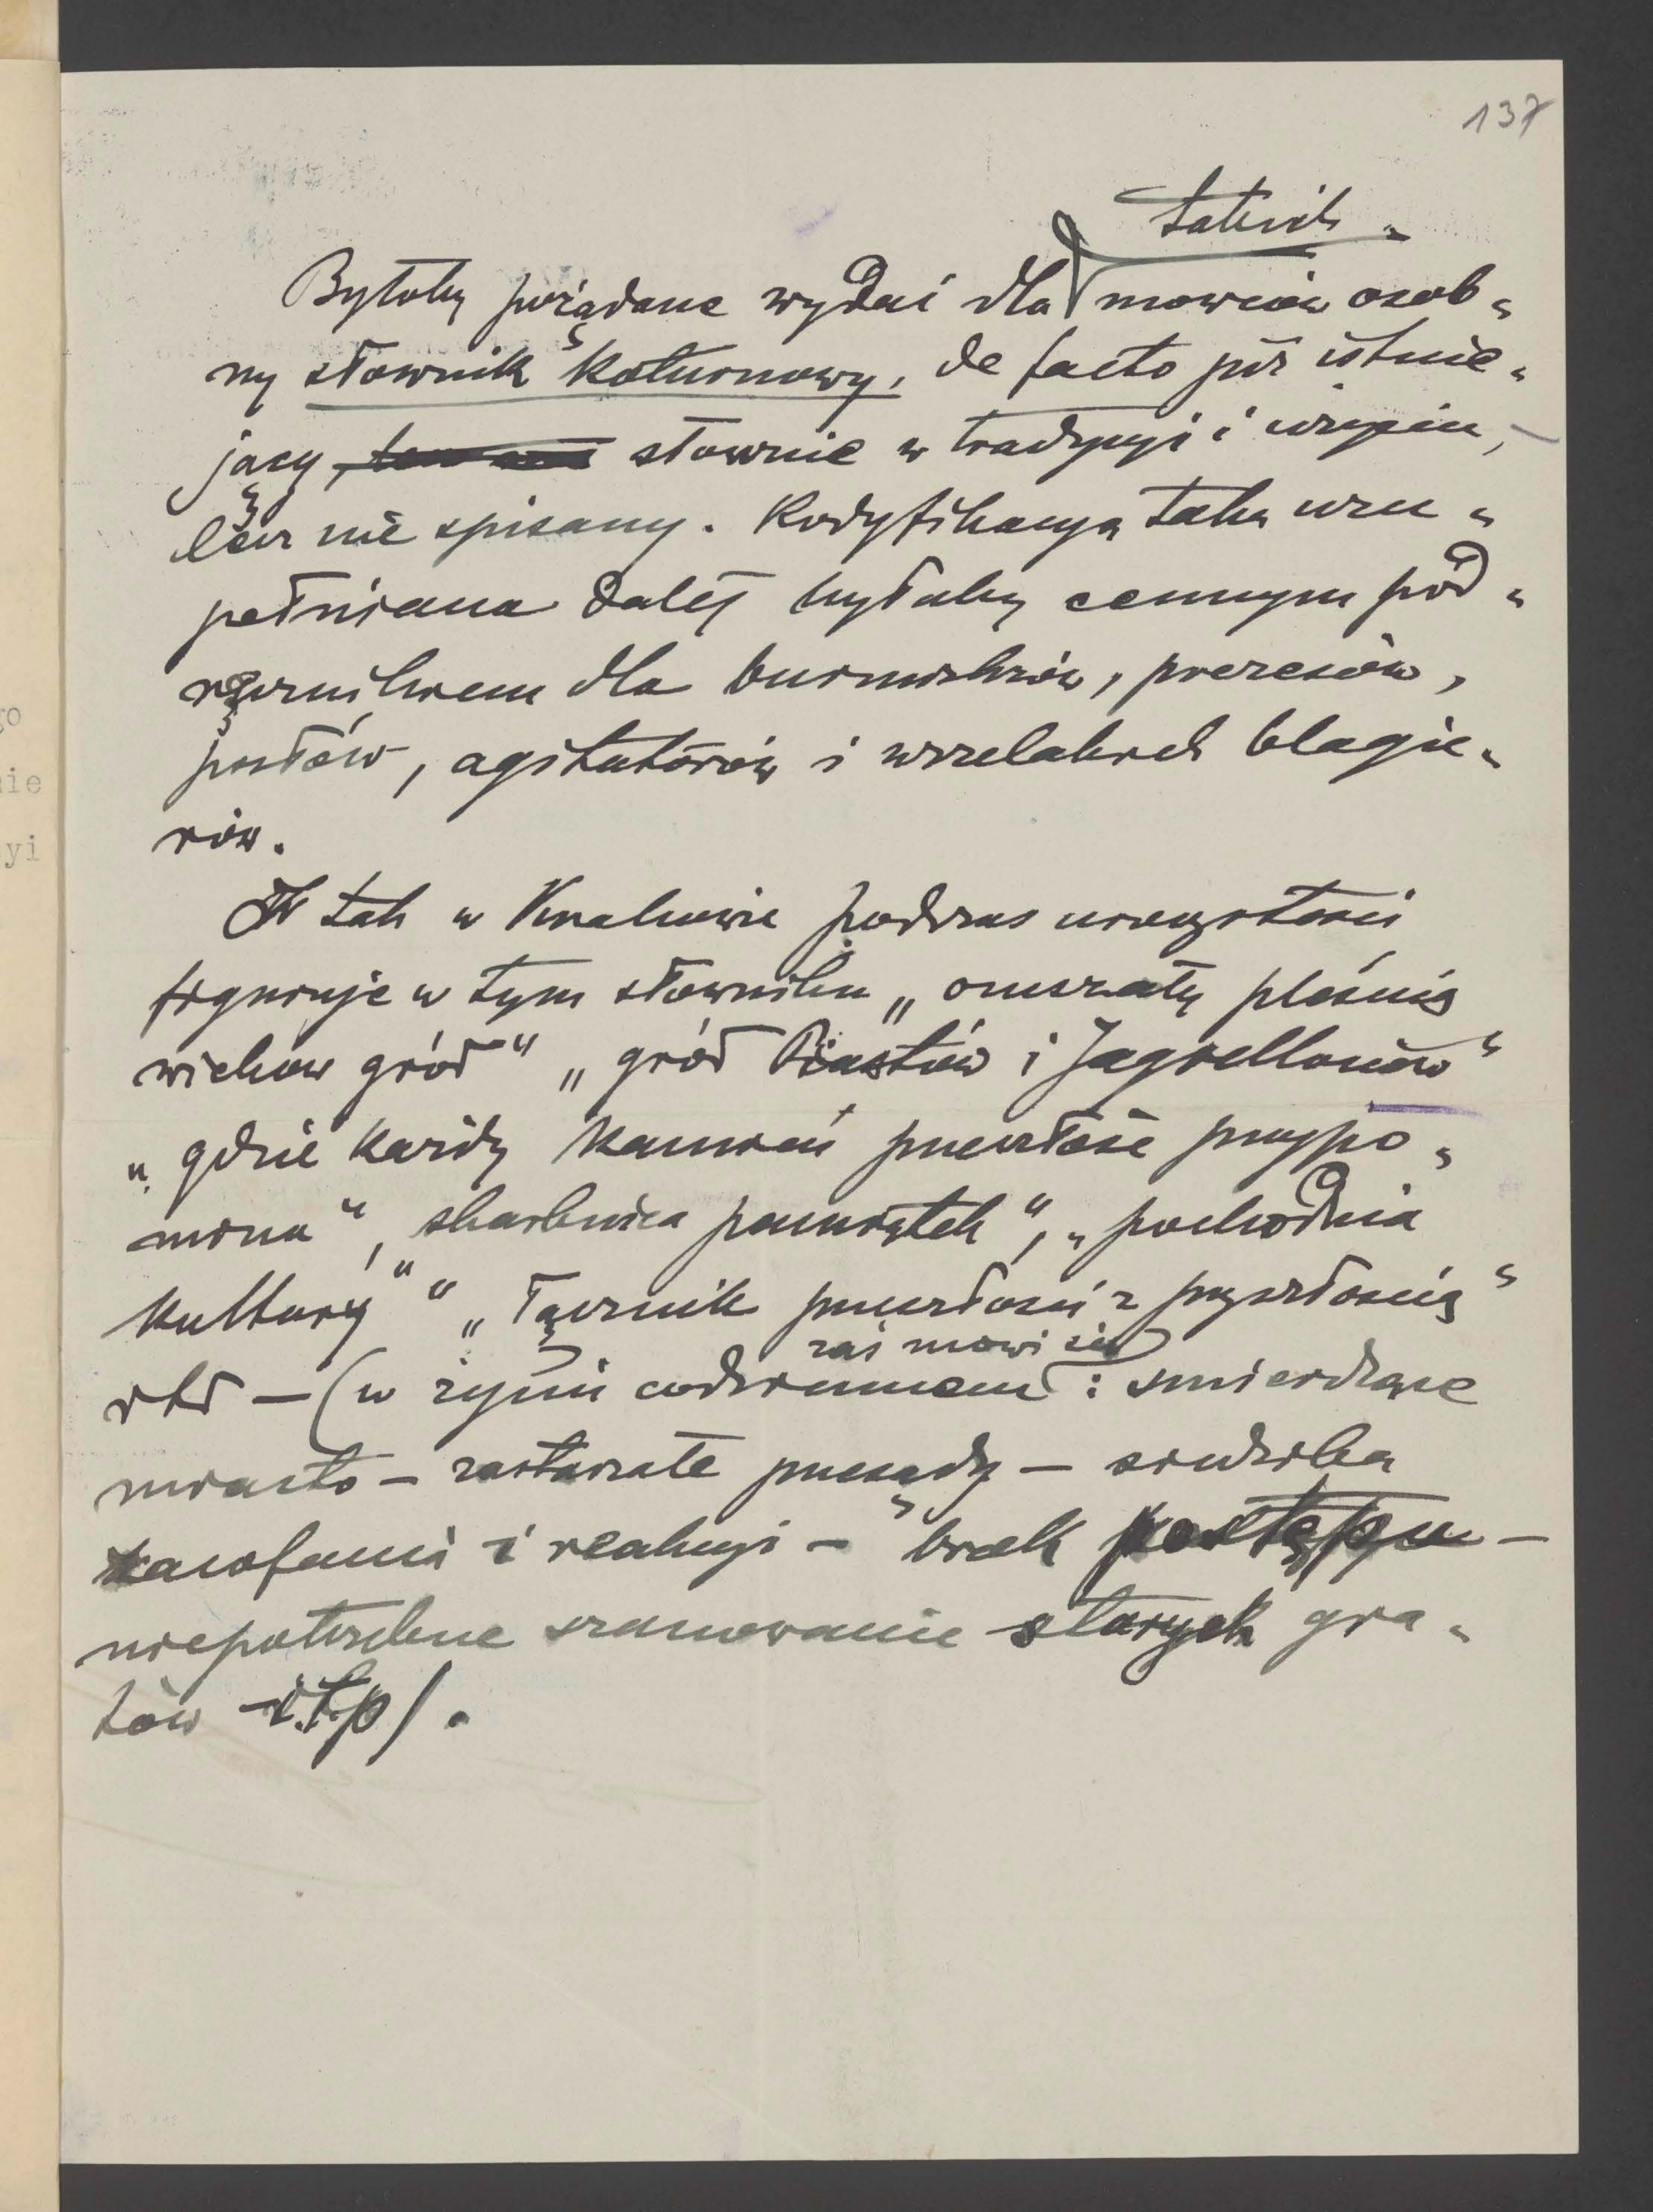 137
takich
Byłoby pożądane wydać dla mowców osob„
ny słownik koturnowy, de facto już istnie„
jący słownie w tradycyi i użyciu,
lecz nie spisany. Kodyfikacya taka uzu„
pełniana dalej byłaby cennym pod„
ręcznikiem dla burmistrzów, prezesów,
posłów, agitatorów i wszelakich blagie„
rów.
I tak w Krakowie podczas uroczystości
figuruje w tym słowniku „omszały pleśnią
wieków gród“ „gród Piastów i Jagiellonów“
„gdzie każdy kamień przeszłość przypo„
mina“, skarbnica pamiątek“, „pochodnia
kultury“ „Łącznik przeszłości z przyszłością“
etc – (w życiu codziennem zaś mówi się: śmierdzące
miasto – zastarzałe przesądy – siedziba
zacofania i reakcyi – brak postępu –
niepotrzebne szanowanie starych gra„
tów – i.t.p).
go
nie
yi